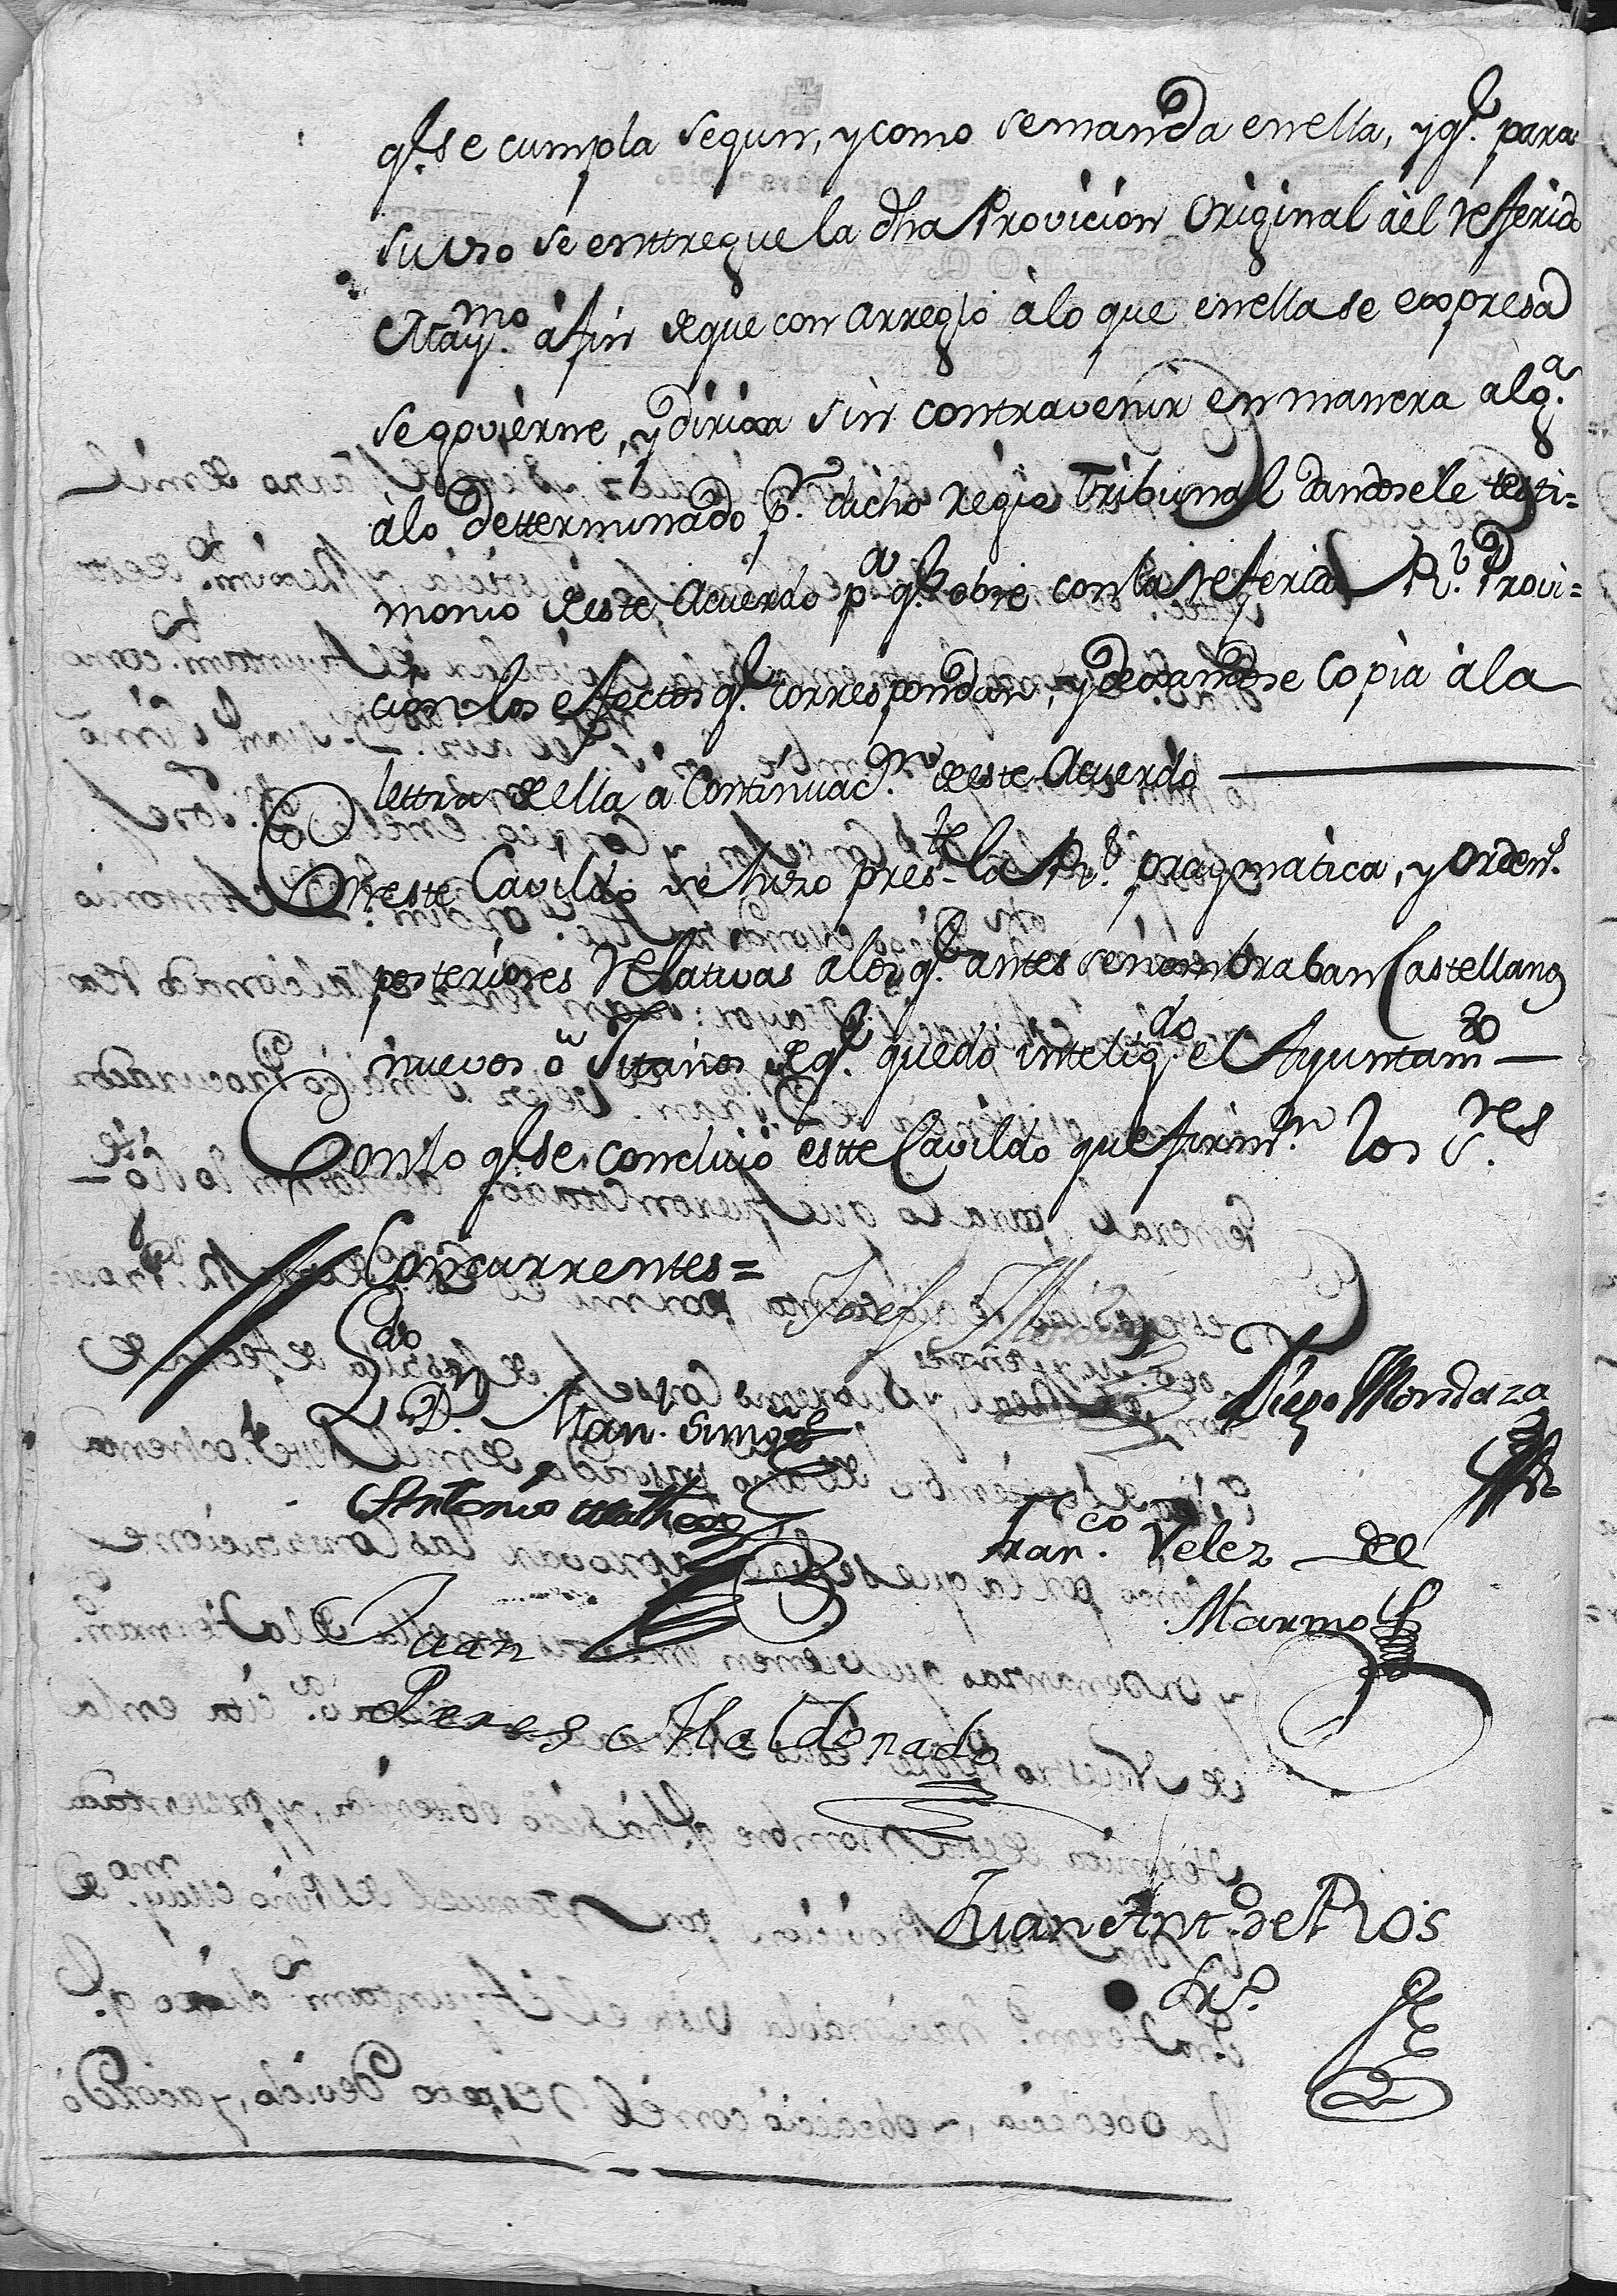 q.e se cumpla segun, y como se manda en ella, y q.e para
su uso se enttregue la dha Provicion Original à el refferido
May.mo à fin de que con arreglo à lo que en ella se expresa
se govierne, y dirixa sin contravenir en manera alg.a
a lo detterminado p.r dicho regio Tribunal dandosele testi=
monio de este Acuerdo p.a q.e obre con la refferida R.l Provi=
cion los efectos q.e correspondan, y dexandose copia à la
lettra de ella à continuac.n de este Acuerdo
En este Cavildo se hizo pres.te la R.l pragmatica, y orden.s
posteriores relativas a los q.e antes se nombraban Castellanos
nuevos ô Gitanos de q.e quedó intelig.do el Ayuntam.to
Con lo q.e se concluió estte Cavildo que firm.n los S.res
Concurrentes=
Josef
Ldo
D. Man. Simo
Diego Mondaza
Antonio Matheos
Fran.co Velez de
Marmol
Juan
Peres Maldonado
Juan Ant.o de Rios
Sr.o